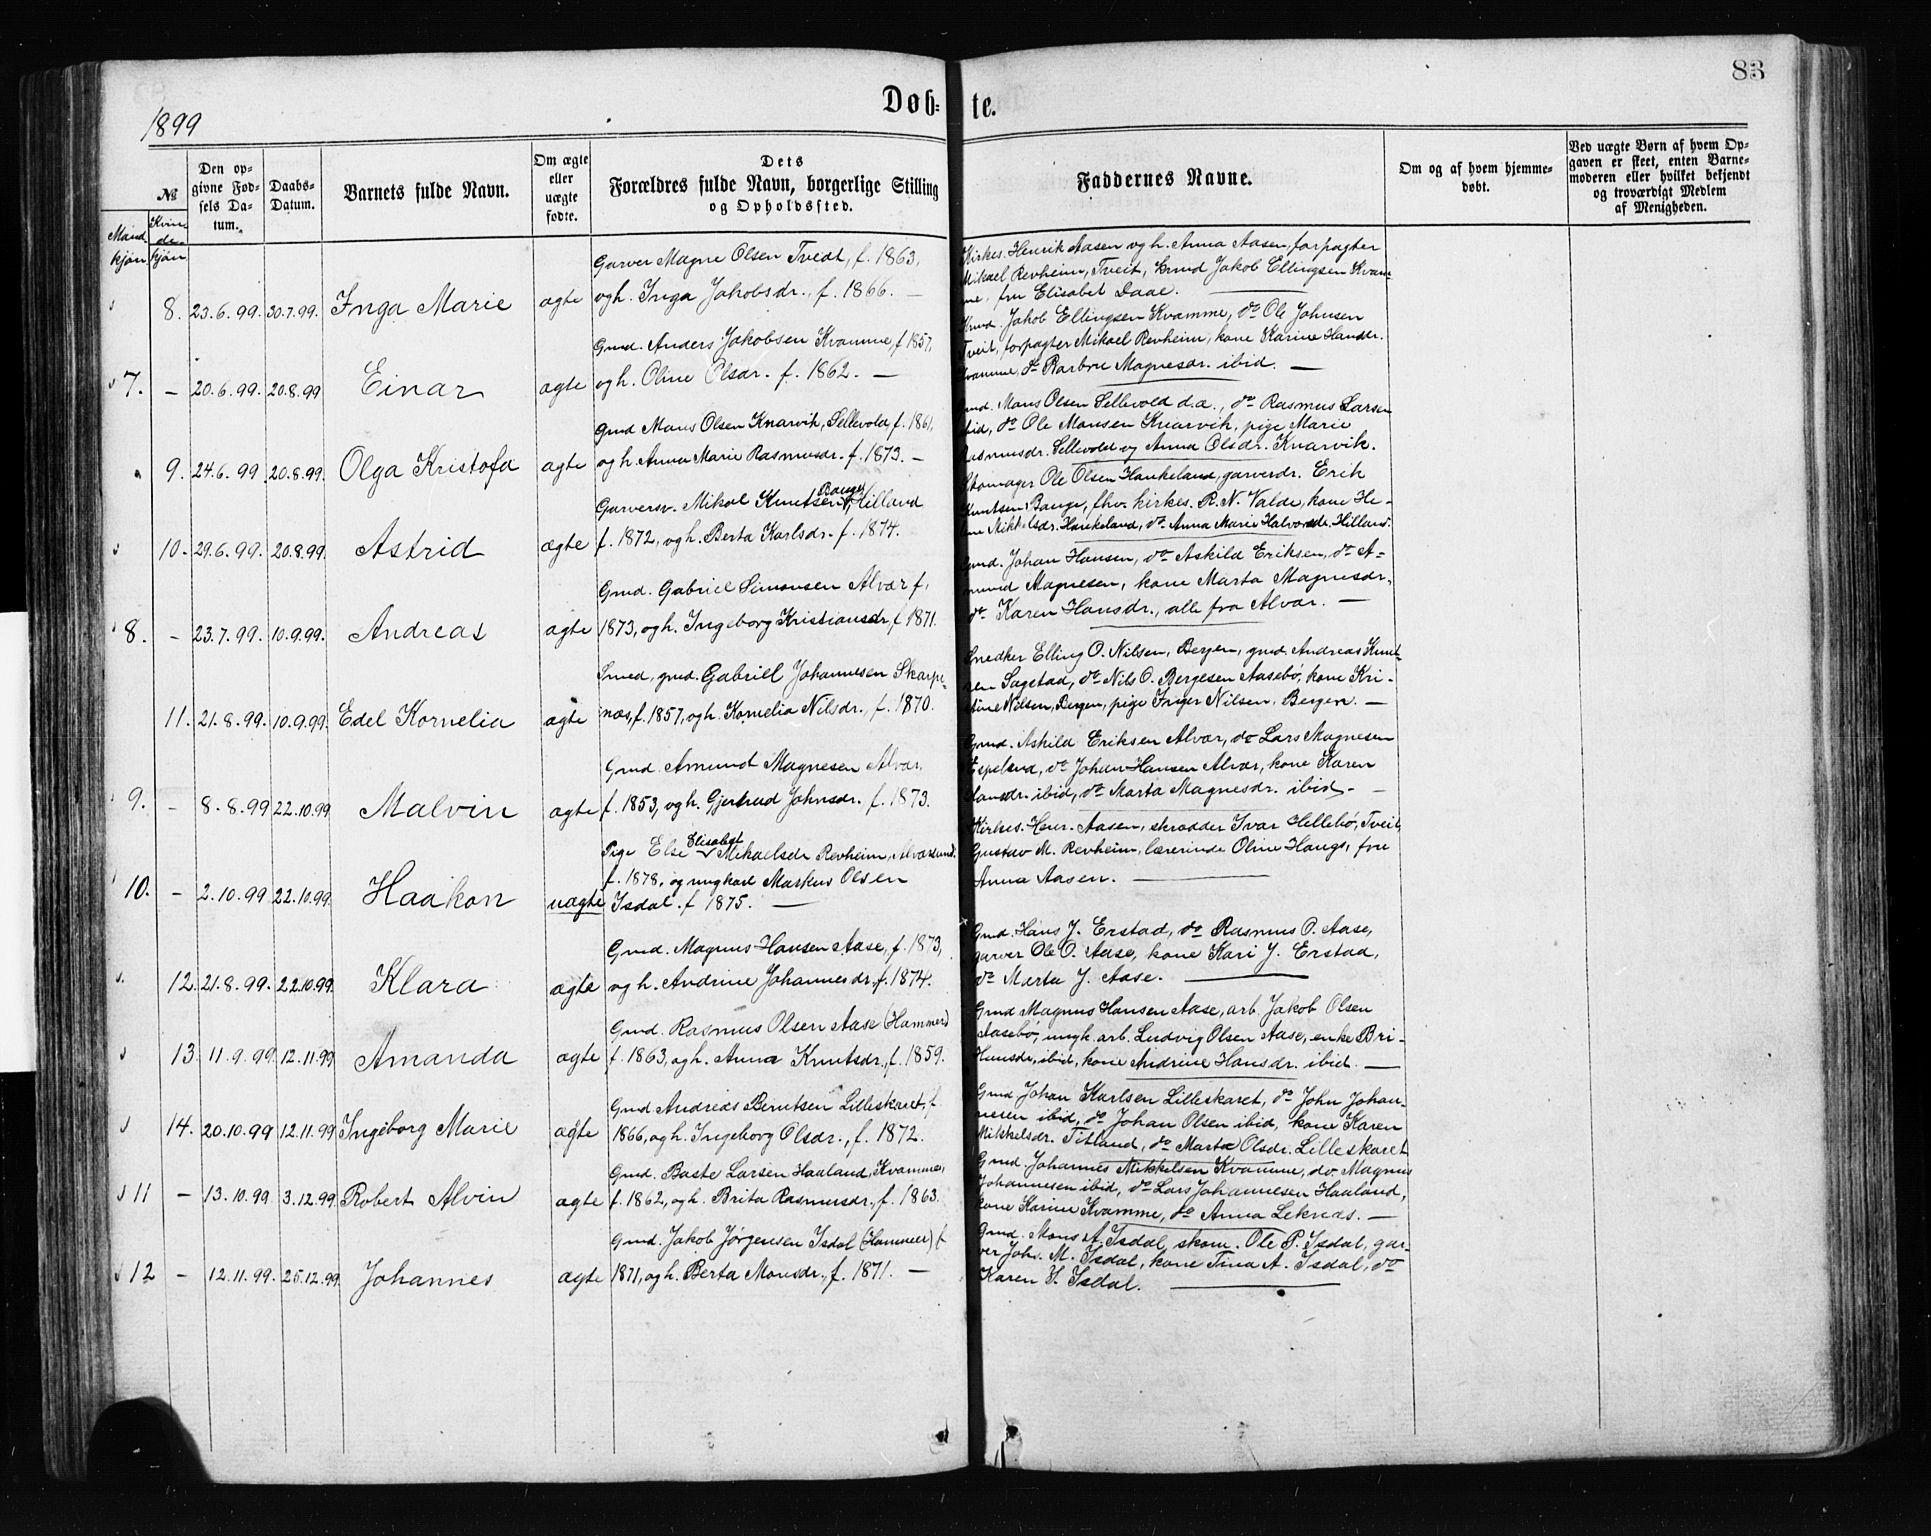 83
Døb-te.
1899
№
Den opgivne Fødsels Datum.
Daabs-Datum.
Barnets fulde Navn.
Om ægte eller uægte fødte.
Dets Forældres fulde Navn, borgerlige Stilling og Opholdssted.
Faddernes Navne.
Om og af hvem hjemmedøbt.
Ved uægte Børn af hvem Opgaven er skeet, enten Barnemoderen eller hvilket bekjendt og troværdigt Medlem af Menigheden.
Mandkjøn.
Kvindekjøn.
8. 23.6.99. 30.7.99. Inga Marie ægte
Garver Magne Olsen Tveit, f. 1863,
og h. Inga Jakobsdr., f. 1866. —
Kirkes. Henrik Aasen og h. Anna Aasen, forpagter
Mikael Revheim, Tveit, Gmd Jakob Ellingsen Kvam-
me, fru Elisabet Daae.
7. — 20.6.99. 20.8.99 Einar ægte
Gmd. Anders Jakobsen Kvamme, f. 1857,
og h. Oline Olsdr. f. 1862. —
Gmd. Jakob Ellingsen Kvamme, do Ole Johnsen
Tveit, forpagter Mikael Revheim, kone Karine Hansdr.
Kvamme, do Barbru Magnesdr. ibid. —
9. 24.6.99 20.8.99. Olga Kristofa ægte
Gmd Mons Olsen Knarvik, Sellevold, f. 1861,
og h. Anna Marie Rasmusdr. f. 1873. —
Gmd. Mons Olsen Sellevold d.a., do Rasmus Larsen
ibid, do Ole Monsen Knarvik, pige Marie
Rasmusdr. Sellevold og Anna Olsdr. Knarvik.
10. 29.6.99. 20.8.99. Astrid ægte
Garversv. Mikal Knutsen Bauge, Hilland
f. 1872, og h. Berta Karlsdr. f. 1874.
Skomager Ole Olsen Haukeland, garverdr. Erik
Knutsen Bauge, fhv. kirkes. R. N. Valde, kone He-
lene Mikkelsdr. Haukeland, do Anna Marie Halvorsdr. Hilland.
8. — 23.7.99. 10.9.99. Andreas ægte
Gmd. Gabriel Simonsen Alvær f.
1873, og h. Ingeborg Kristiansdr, f. 1871.
Gmd. Johan Hansen, do Askild Eriksen, do A-
mund Magnesen, kone Marta Magnesdr.,
do Karen Hansdr., alle fra Alvær. —
11. 21.8.99. 10.9.99. Edel Kornelia ægte
Smed, gmd. Gabriel Johannesen Skarpe-
næs, f. 1857, og h. Kornelia Nilsdr., f. 1870.
Snedker Elling O. Nilsen, Bergen, gmd. Andreas Knut-
sen Sagstad, do Nils O. Bergesen Aasebø, kone Kri-
stine Nilsen, Bergen, pige Inger Nilsen, Bergen. —
9. — 8.8.99 22.10.99 Malvin ægte
Gmd. Amund Magnesen Alvær,
f. 1853, og h. Gjertrud Johnsdr. f. 1873.
Gmd. Askild Eriksen Alvær, do Lars Magnesen
Espeland, do Johan Hansen Alvær, kone Karen
Hansdr. ibid, do Marta Magnesdr. ibid. —
10. — 2.10.99 22.10.99 Haakon uægte
Pige Else Elisabet Mikaelsdr Revheim, Alværsund.
f. 1878, og ungkarl Markus Olsen
Isdal. f 1875. —
Kirkes. Henr. Aasen, skrædder Ivar Hellebø, Tveit,
Gustav M. Revheim, lærerinde Oline Haugs, fru
Anna Aasen. —
12. 21.8.99. 22.10.99. Klara ægte
Gmd. Magnus Hansen Aase, f. 1873,
og h. Andrine Johannesdr. f. 1874.
Gmd. Hans J. Erstad, do Rasmus O. Aase,
garver Ole O. Aase, kone Kari J. Erstad,
do Marta J. Aase. —
13. 11.9.99. 12.11.99 Amanda ægte
Gmd. Rasmus Olsen Aase (Hammer)
f. 1863, og h. Anna Knutsdr., f. 1859.
Gmd Magnus Hansen Aase, arb. Jakob Olsen
Aasebø, ungk. arb. Ludvig Olsen Aase, enke Bri-
Hansdr, ibid, kone Andrine Hansdr. ibid. —
14. 20.10.99 12.11.99 Ingeborg Marie ægte
Gmd Andreas Berntsen Lilleskaret, f.
1866, og h. Ingeborg Olsdr., f. 1872.
Gmd Johan Karlsen Lilleskaret, do John Johan-
nesen ibid, do Johan Olsen ibid, kone Karen
Mikkelsdr. Titland, do Marta Olsdr. Lilleskaret
11 — 13.10.99 3.12.99 Robert Alvin ægte
Gmd. Baste Larsen Haaland, Kvamme,
f. 1862, og h. Brita Rasmusdr., f. 1863.
Gmd. Johannes Mikkelsen Kvamme, do. Magnus
Johannesen ibid, do Lars Johannesen Haaland,
kone Karine Kvamme, do Anna Leknes. —
12 — 12.11.99. 25.12.99 Johannes ægte
Gmd. Jakob Jørgensen Isdal (Hammer) f.
1871, og h. Berta Monsdr., f. 1871. —
Gmd. Mons A. Isdal, skom. Ole P. Isdal, gar-
ver Johs. M. Isdal, kone Tina A. Isdal, do
Karen S. Isdal. —